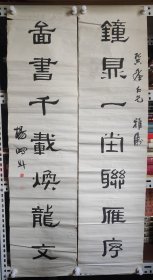 鐘鼎一堂聯雁序
啚書千載煥龍文